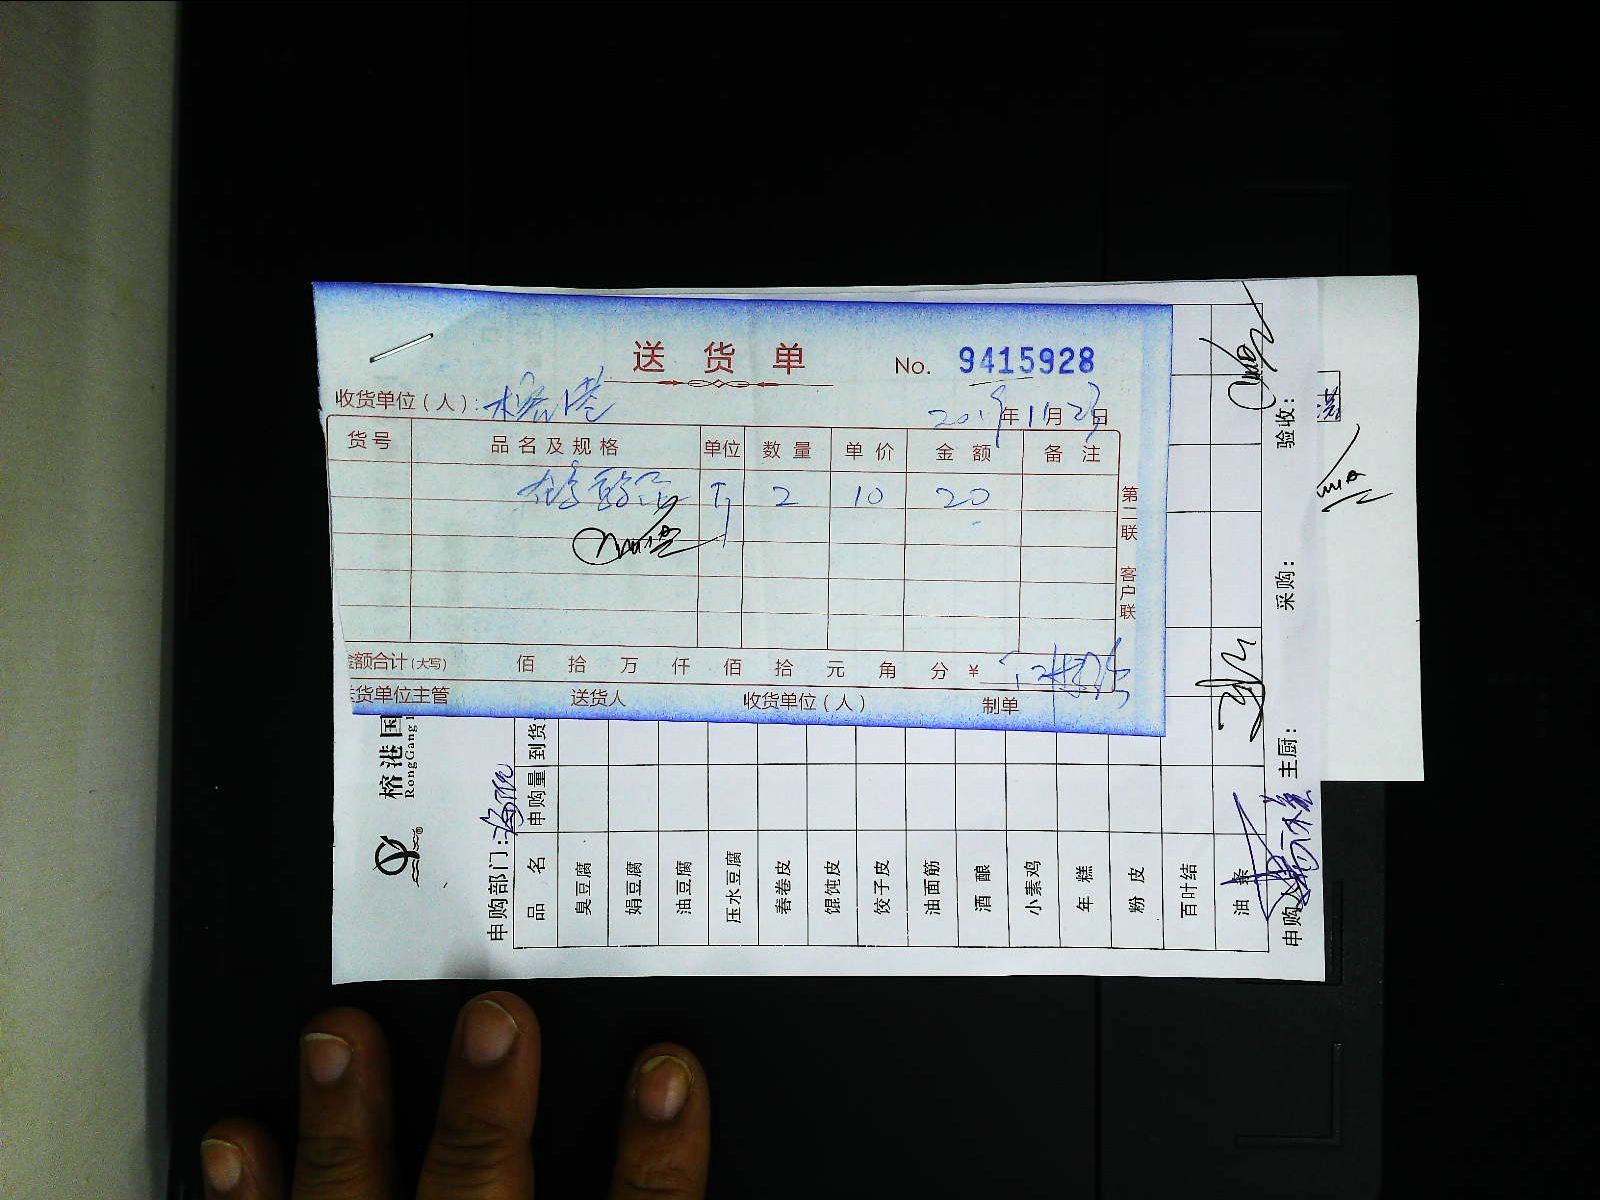 送货单 No. 9415928
收货单位(人): 榕港 2019年11月23日
货号 品名及规格 单位 数量 单价 金额 备注
2 10 20
第二联 客户联
金额合计(大写) 佰 拾 万 仟 佰 拾 元 角 分 ¥
送货单位主管 送货人 收货单位(人) 制单
榕港国
RongGang
申购部门:
品名 申购量 到货
臭豆腐
娟豆腐
油豆腐
压水豆腐
春卷皮
馄饨皮
饺子皮
油面筋
酒酿
小素鸡
年糕
粉皮
百叶结
油条
申购人 主厨: 采购: 验收: